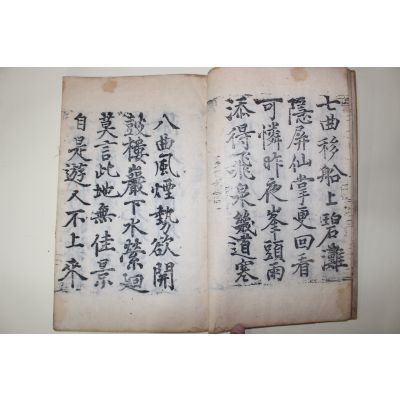 七曲移船上碧灘
隱屏仙掌更回看
可憐昨夜峯頭雨
添得飛泉幾道寒
八曲風煙勢欲開
皷樓巖下水縈迴
莫言此地無佳景
自是遊人不上來